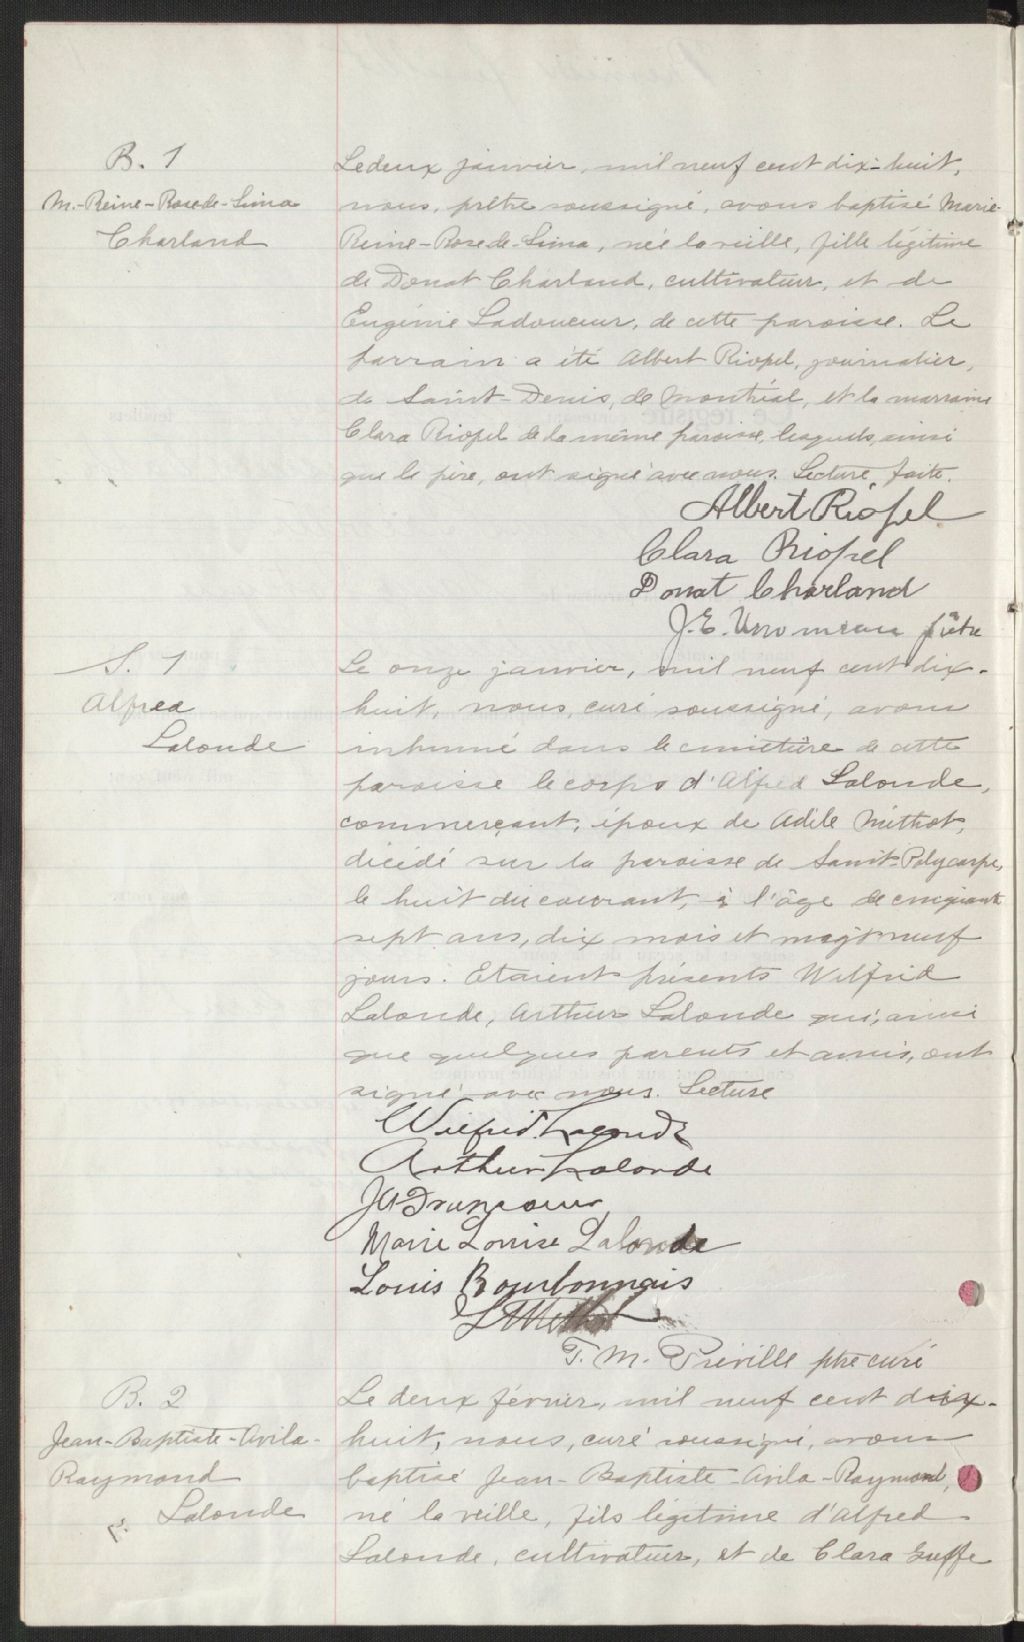 B. 1
M.-Reine-Rose de-Lima
Charland
Le deux janvier, mil neuf cent dix-huit,
nous, prêtre soussigné, avons baptisé Marie-
Reine-Rose de-Lima, née la veille, fille légitime
de Donat Charland, cultivateur, et de
Eugénie Ladouceur, de cette paroisse. Le
parrain a été Albert Riopel, journalier,
de Saint-Denis, de Montréal, et la marraine
Clara Riopel de la même paroisse, lesquels, ainsi
que le père, ont signé avec nous. Lecture faite.
Albert Riopel
Clara Riopel
Donat Charland
J. E. prêtre
S. 1
Alfred
Lalonde
Le onze janvier, mil neuf cent dix-
huit, nous, curé soussigné, avons
inhumé dans le cimetière de cette
paroisse le corps d'Alfred Lalonde,
commerçant, époux de Adèle Méthot,
décédé sur la paroisse de Saint-Polycarpe,
le huit du courant, à l'âge de cinquante
sept ans, dix mois et vingt neuf
jours. Etaient présents Wilfrid
Lalonde, Arthur Lalonde qui, ainsi
que quelques parents et amis, ont
signé avec nous. Lecture
Wilfrid Lalonde
Arthur Lalonde
Marie Louise Lalonde
Louis Bourbonnais
T. M. Préville ptre curé
B. 2
Jean-Baptiste-Avila-
Raymond
Lalonde
Le deux février, mil neuf cent dix-
huit, nous, curé soussigné, avons
baptisé Jean-Baptiste-Avila-Raymond,
né la veille, fils légitime d'Alfred
Lalonde, cultivateur, et de Clara